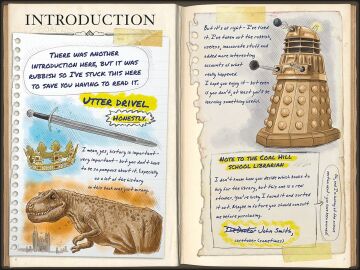 INTRODUCTION
THERE WAS ANOTHER
INTRODUCTION HERE, BUT IT WAS
RUBBISH SO I'VE STUCK THIS HERE
TO SAVE YOU HAVING TO READ IT.
UTTER DRIVEL.
HONESTLY.
I mean, yes, history is important -
very important - but you don't have to
be so pompous about it. Especially
as a lot of the history
in this book was just wrong.
But it's all right - I've fixed
it. I've taken out the rubbish,
useless, inaccurate stuff and
added more interesting
accounts of what
really happened.
I hope you enjoy it - but even
if you don't, at least you'll be
learning something useful.
NOTE TO THE COAL HILL
SCHOOL LIBRARIAN
I don't know how you decide which books to
buy for the library, but this one is a real
stinker. You're lucky I found it and sorted
it out. Maybe in future you should consult
me before purchasing.
The Doctor John Smith,
caretaker (sometimes)